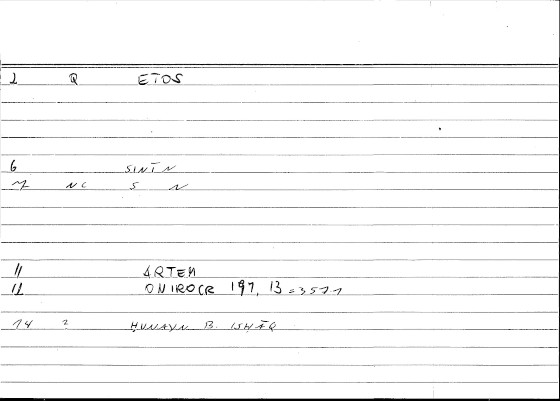 1 Q ETOS
6 SINĪN
7 NC S N
11 ARTEM
12 ONIROCR 197, 13 = 3577
14 2 ḤUNAYN B. ISḤĀQ